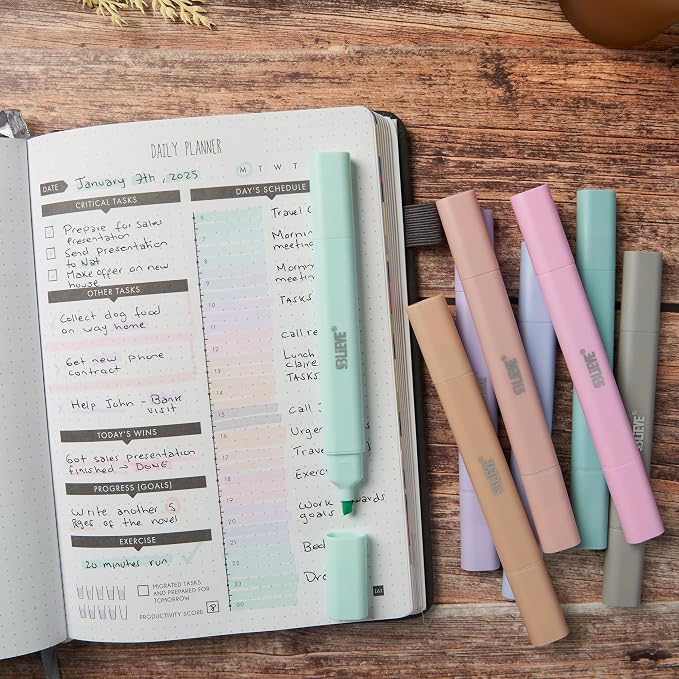 DAILY PLANNER
M T W T
DATE January 7th, 2025
CRITICAL TASKS
Prepare for sales
presentation
Send presentation
to Nat
Make offer on new
house
OTHER TASKS
Collect dog food
on way home
Get new phone
contract
Help John - Bank
visit
TODAY'S WINS
Got sales presentation
finished → DONE
PROGRESS (GOALS)
Write another 5
pages of the novel
EXERCISE
20 minutes run
MIGRATED TASKS
AND PREPARED FOR
TOMORROW
PRODUCTIVITY SCORE 8
DAY'S SCHEDULE
6
7
8
9
10
11
12
13
14
15
16
17
18
19
20
21
22
23
00
Travel
Morn
meeting
Morn
meeti
TASKS
Call re
Lunch
Claire
TASKS
Call
Urge
Trave
Exerc
Work wards
goals
Bed
Dr
161
BLIEVE®
BLIEVE
BLIEVE®
BLIEVE
BLIEVE®